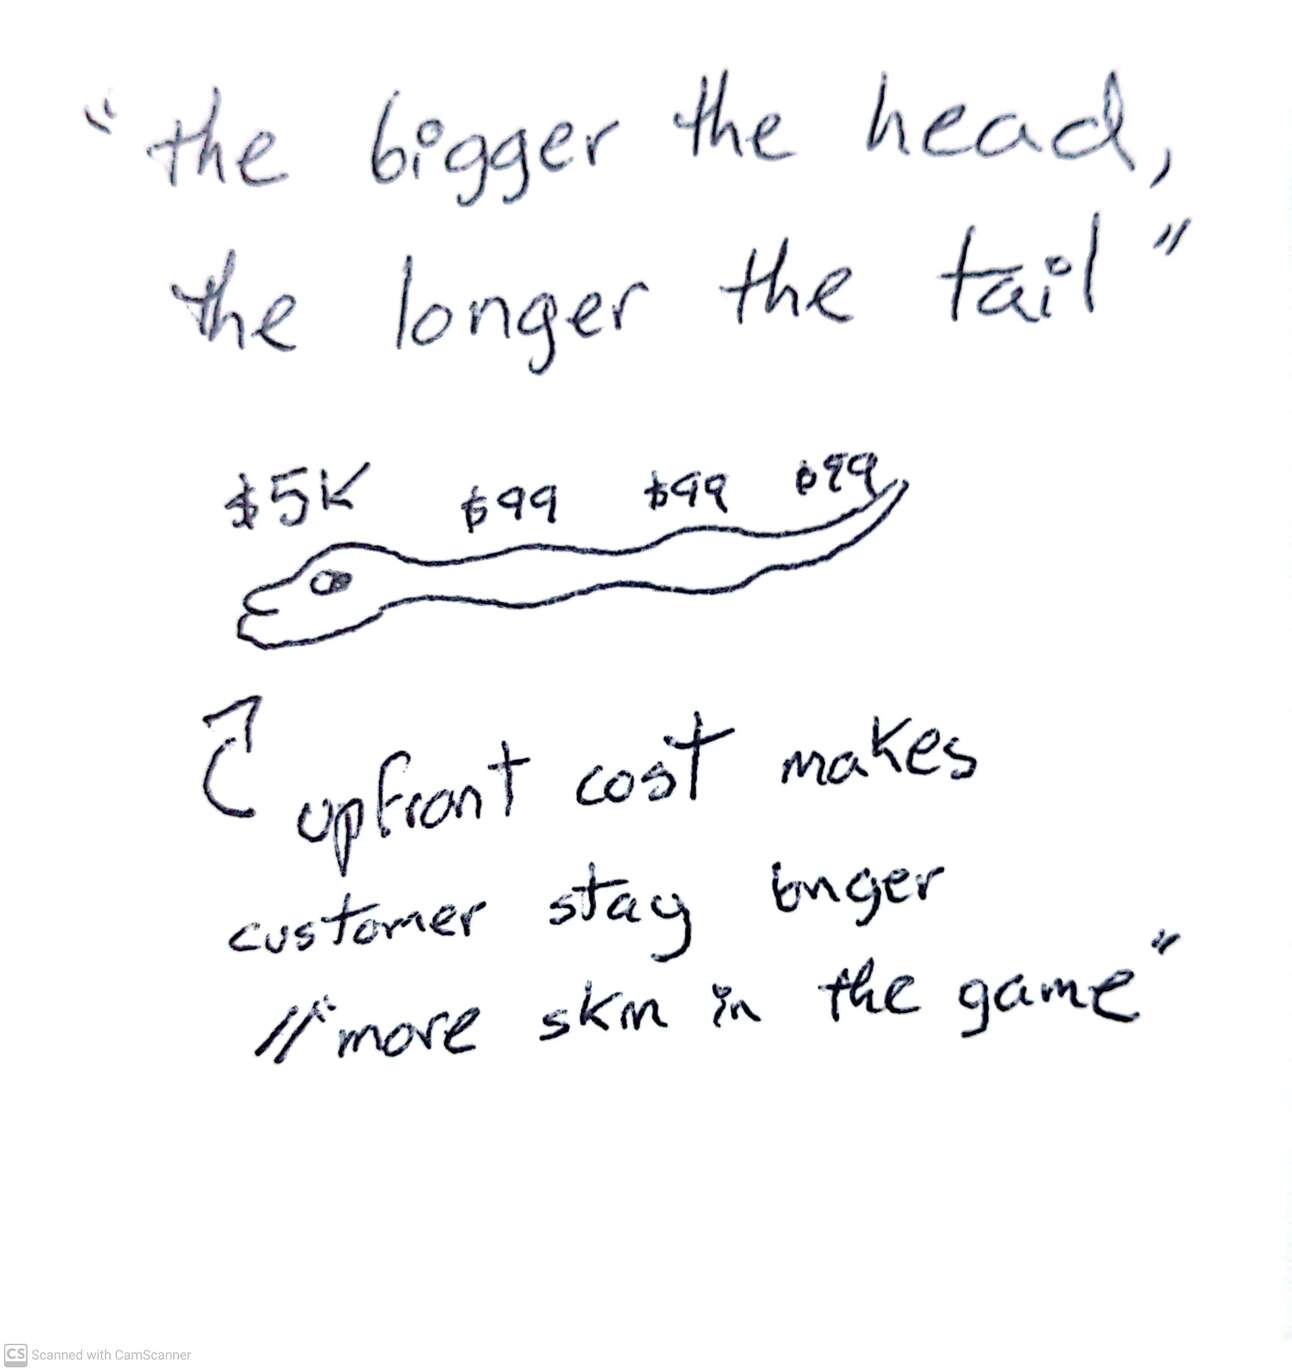 "the bigger the head,
the longer the tail"
$5K $99 $99 $99
upfront cost makes
customer stay longer
// "more skin in the game"
CS Scanned with CamScanner